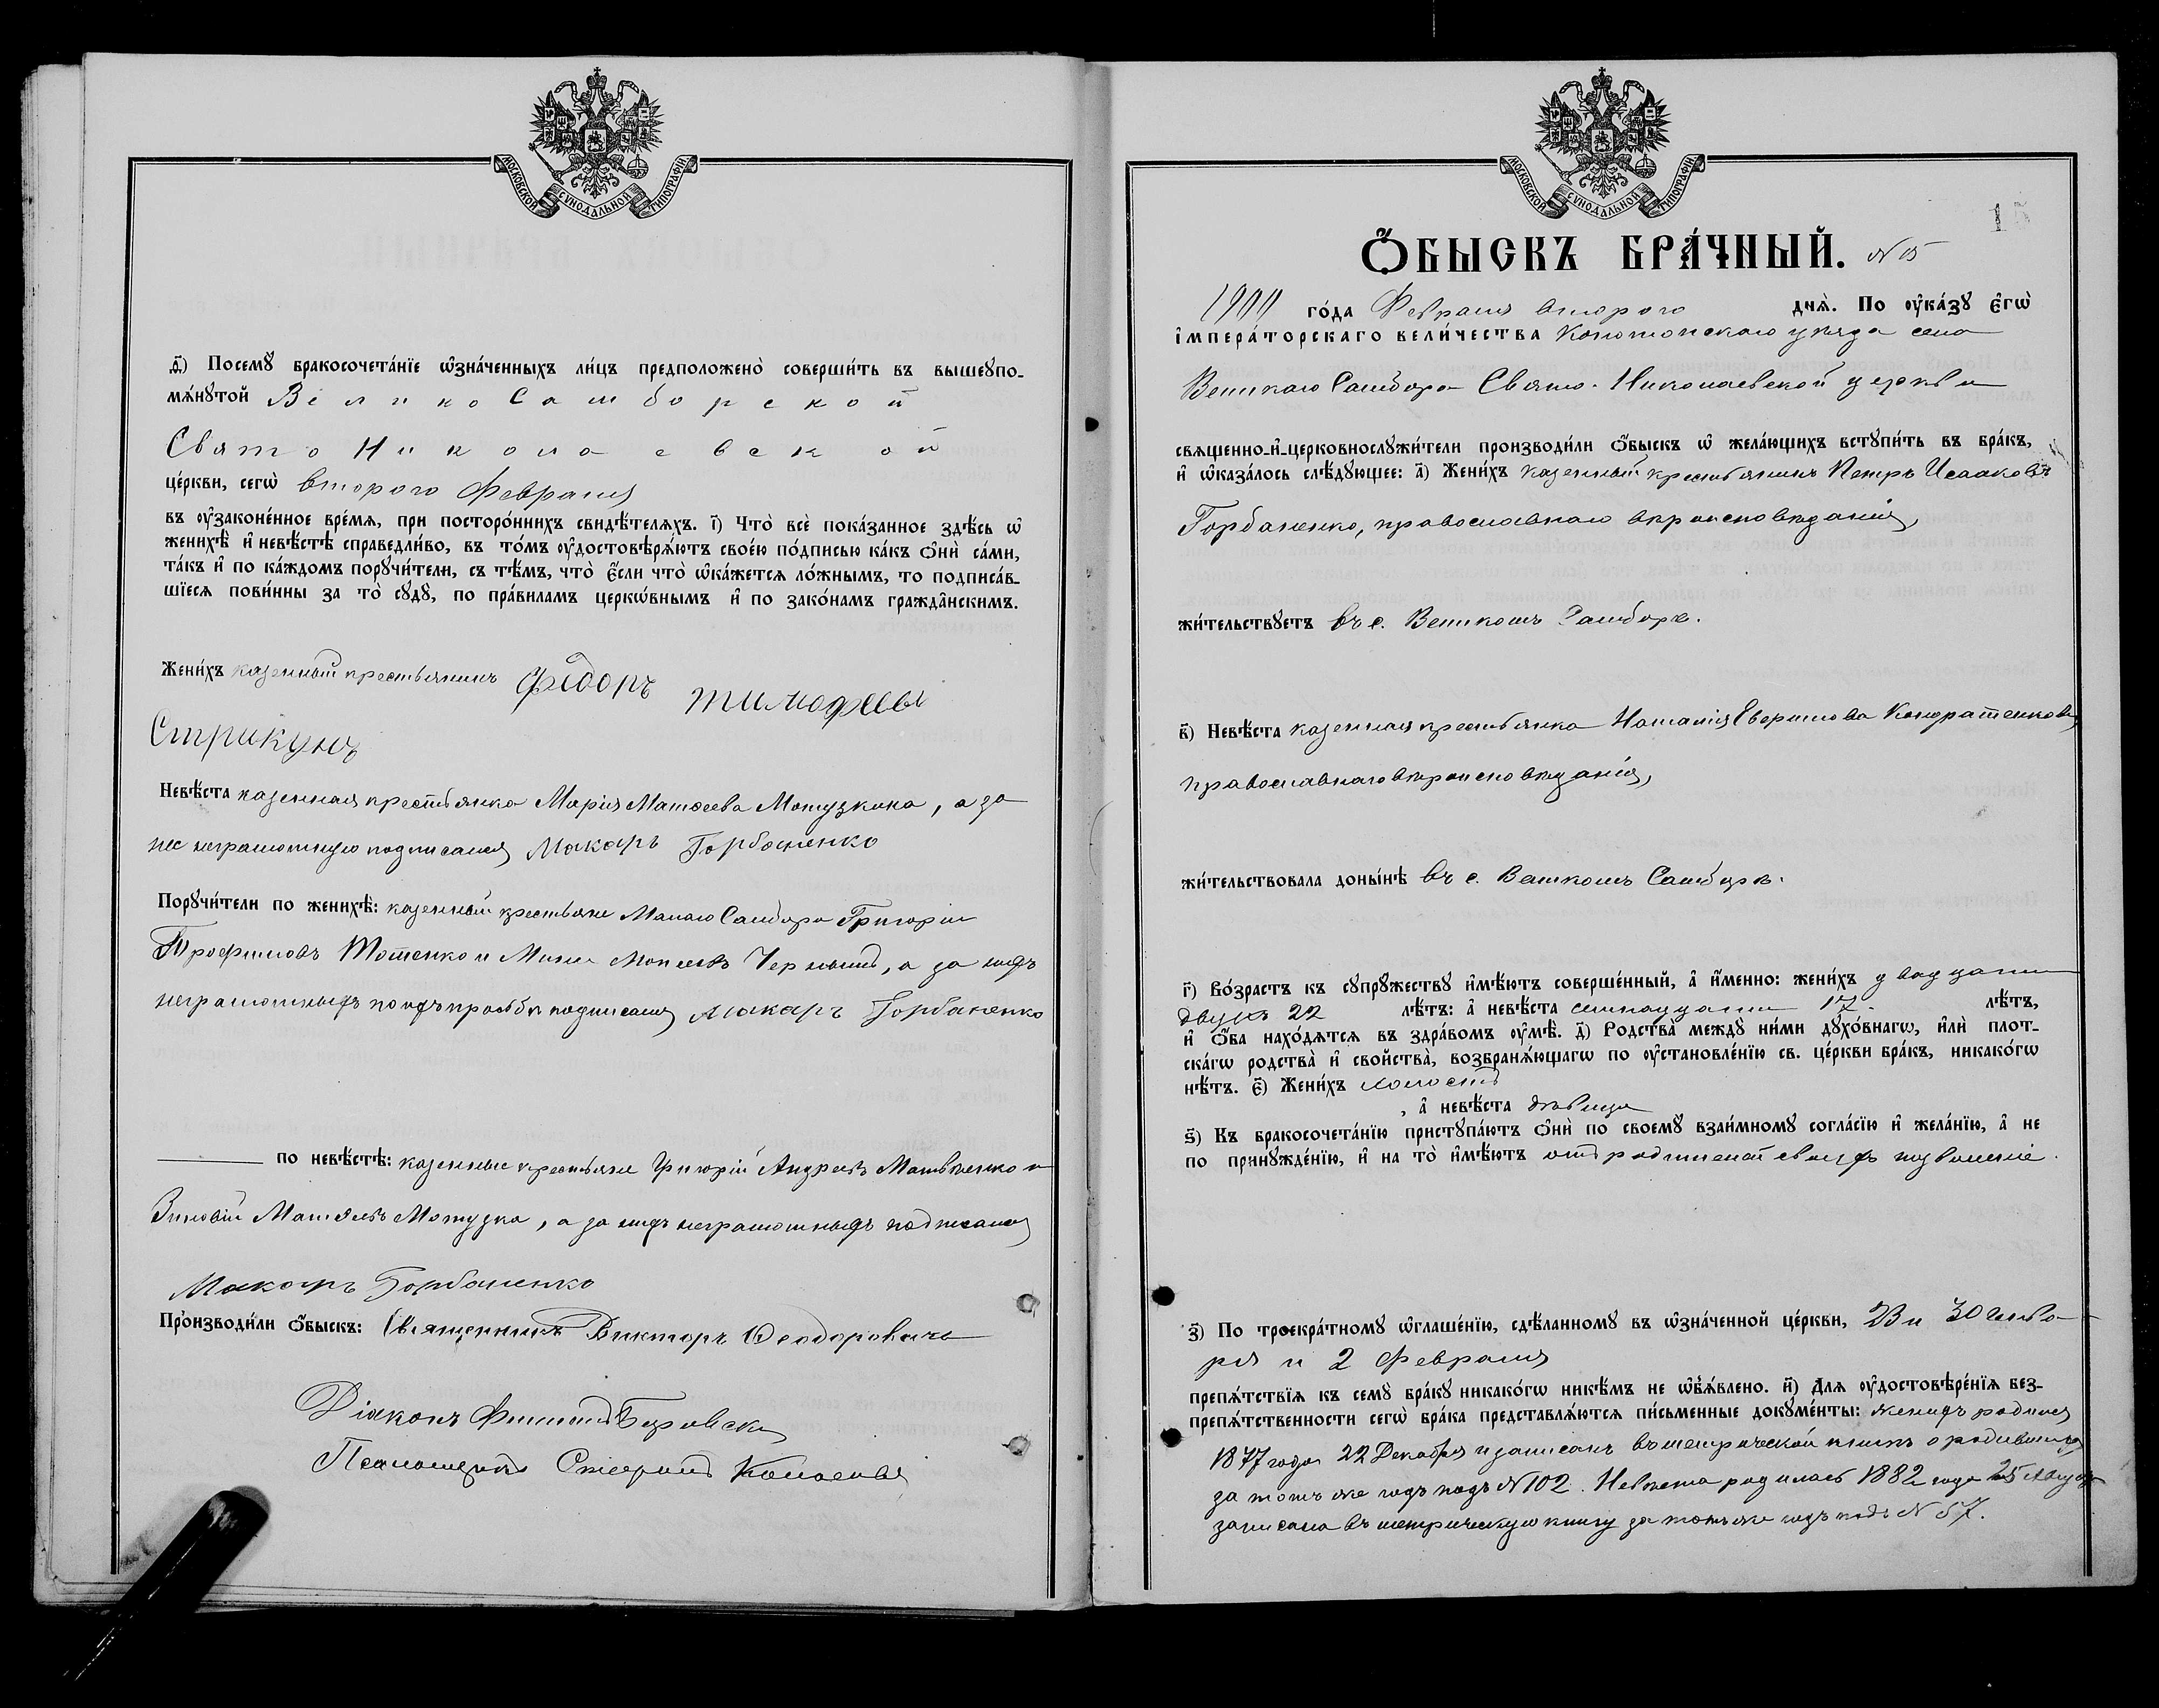 МОСКОВСКОЙ СѴНОДАЛЬНОЙ ТИПОГРАФІИ
ѳ҃) Посемꙋ̀ бракосочета́нїе ѡ҆зна́ченныхъ ли́цъ предположено̀ соверши́ть въ вышеꙋпо-
мѧ́нꙋтой ВеликоСамборской
СвятоНиколаевской
це́ркви, сегѡ̀ второго Февраля
въ ᲂу҆законе́нное вре́мѧ, при посторо́ннихъ свидѣ́телѧхъ. і҃) Что̀ всѐ пока́занное здѣ́сь ѡ҆
женихѣ̀ и҆ невѣ́стѣ справедли́во, въ то́мъ ᲂу҆достовѣрѧ́ютъ свое́ю по́дписью ка́къ ѻ҆нѝ са́ми,
та́къ и҆ по ка́ждомъ порꙋчи́тели, съ тѣ́мъ, что̀ є҆́сли что̀ ѡ҆ка́жетсѧ ло́жнымъ, то подписа́в-
шїесѧ пови́нны за то̀ сꙋдꙋ̀, по пра́виламъ церкѡ́внымъ и҆ по зако́намъ гражда̑нскимъ.
Жени́хъ казенный крестьянинъ Федоръ Тимофеевъ
Стрикунъ
Невѣ́ста казенная крестьянка Марія Матѳеева Мотузкина, а за
нее неграмотную подписался Макаръ Горбаненко
Порꙋчи́тели по женихѣ̀: казенный крестьяне Малого Самбора Григорій
Трофимовъ Тотенко и Мина Моисеевъ Черныш, а за нихъ
неграмотныхъ по ихъ просьбѣ подписался Макаръ Горбаненко
по невѣ́стѣ: казенные крестьяне Григорій Андреевъ Матвѣенко и
Зиновій Матѳеевъ Мотузка, а за нихъ неграмотныхъ подписался
Макаръ Горбаненко
Производи́ли ѻ҆́быскъ: Священникъ Викторъ Ѳеодоровичъ
Діаконъ Филиппъ
Псаломщикъ
МОСКОВСКОЙ СѴНОДАЛЬНОЙ ТИПОГРАФІИ
15
Ѻ҆́БЫСКЪ БРА́ЧНЫЙ. N 15
1900 го́да Февраля второго днѧ̀. По ᲂу҆ка́зꙋ є҆гѡ̀
і҆мпера́торскаго вели́чества Конотопскаго уѣзда села
Великаго Самбора Свято-Николаевской церкви
свѧщенно-и҆-церковнослꙋжи́тели производи́ли ѻ҆́быскъ ѡ҆ жела́ющихъ встꙋпи́ть въ бра́къ,
и҆ ѡ҆каза́лось слѣ́дꙋющее: а҃) Жени́хъ казенный крестьянинъ Петръ Исааковъ
Горбаненко, православнаго вѣроисповѣданія,
жи́тельствꙋетъ въ с. Великомъ Самборѣ.
в҃) Невѣ́ста казенная крестьянка Наталія Кондратенкова,
православнаго вѣроисповѣданія,
жи́тельствовала доны́нѣ въ с. Великомъ Самборѣ.
г҃) Во́зрастъ къ сꙋпрꙋ́жествꙋ и҆мѣ́ютъ соверше́нный, а҆ и҆́менно: жени́хъ двадцати
двухъ 22 лѣ́тъ: а҆ невѣ́ста семнадцати 17. лѣ́тъ,
и҆ ѻ҆́ба нахо́дѧтсѧ въ здра́вомъ ᲂу҆мѣ̀. д҃) Родства̀ междꙋ̀ ни́ми дꙋхо́внагѡ, и҆лѝ плот-
ска́гѡ родства̀ и҆ свойства̀, возбранѧ́ющагѡ по ᲂу҆становле́нїю св. це́ркви бра́къ, никако́гѡ
нѣ́тъ. є҃) Жени́хъ холостъ
, а҆ невѣ́ста дѣвица
ѕ҃) Къ бракосочета́нїю пристꙋпа́ютъ ѻ҆нѝ по своемꙋ̀ взаи́мномꙋ согла́сїю и҆ жела́нїю, а҆ не
по принꙋжде́нїю, и҆ на то̀ и҆мѣ́ютъ отъ родителей своихъ позволеніе.
з҃) По троекра́тномꙋ ѡ҆глаше́нїю, сдѣ́ланномꙋ въ ѡ҆зна́ченной це́ркви, 23 и 30 Генва-
ря и 2 Февраля
препѧ́тствїѧ къ семꙋ̀ бра́кꙋ никако́гѡ никѣ́мъ не ѡ҆б̾ѧ́влено. и҃) Длѧ̀ ᲂу҆достовѣре́нїѧ без-
препѧ́тственности сегѡ̀ бра́ка представлѧ́ютсѧ пи́сьменные докꙋме́нты: женихъ родился
1877 года 22 Декабря и записанъ въ метрической книгѣ о родившихся
за тотъ же годъ подъ N 102. Невѣста родилась 1882 года 25 Августа
записана въ метрическую книгу за тотъ же годъ подъ N 57.